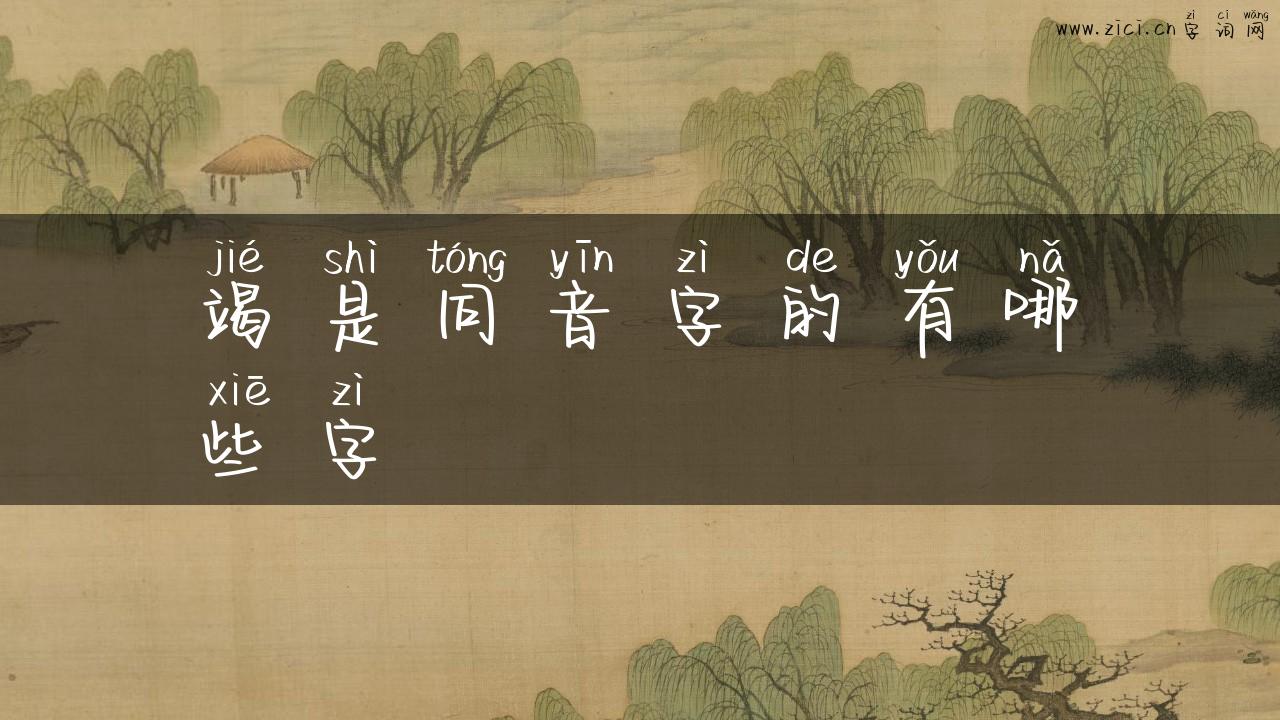 zì cí wǎng
www.zici.cn 字 词 网
jié shì tóng yīn zì de yǒu nǎ
竭 是 同 音 字 的 有 哪
xiē zì
些 字